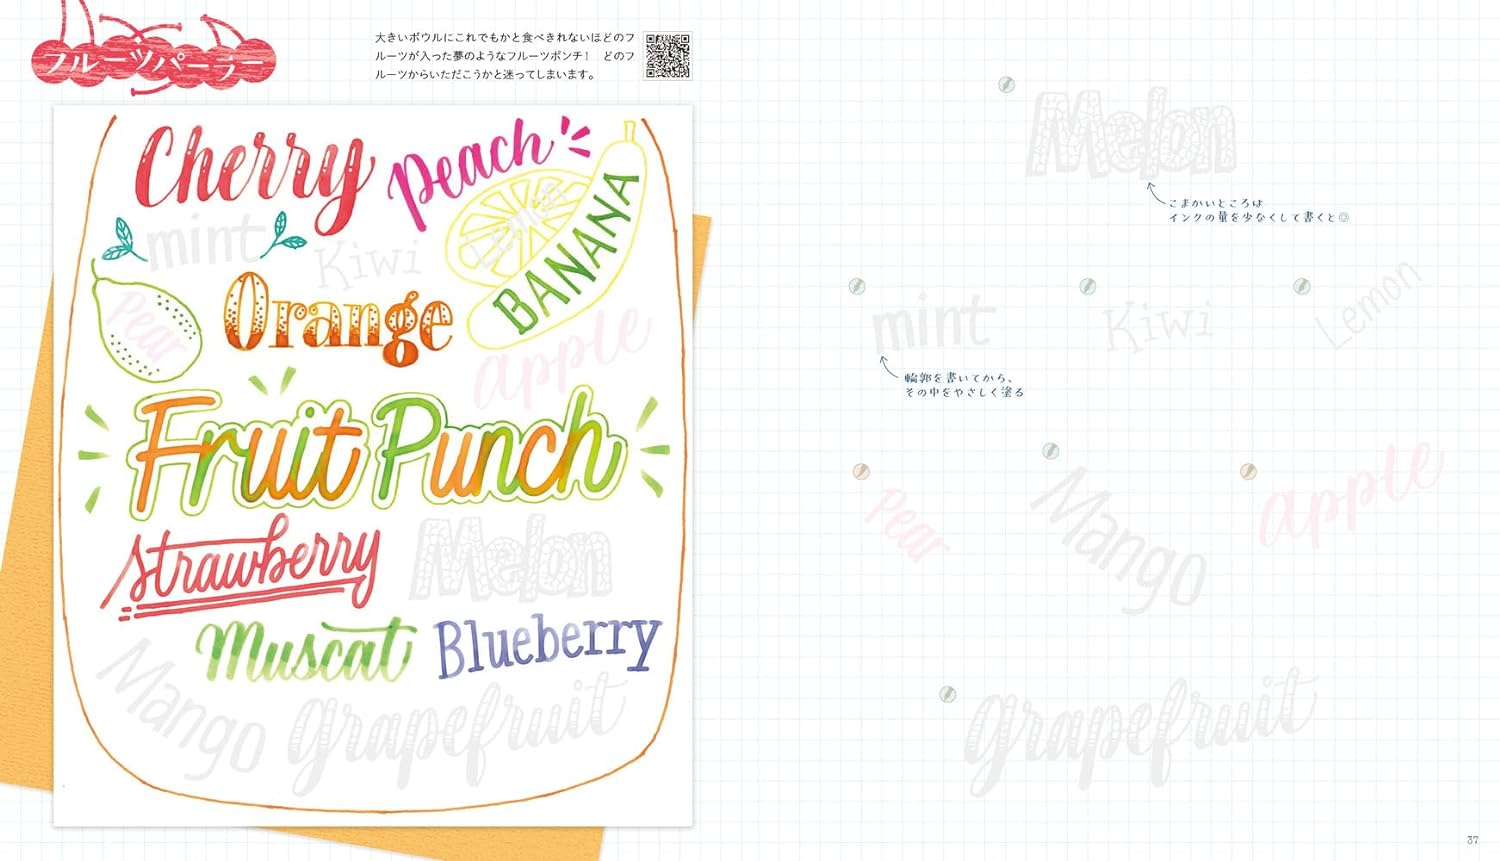 フルーツパーラー
大きいボウルにこれでもかと食べきれないほどのフ
ルーツが入った夢のようなフルーツポンチ！　どのフ
ルーツからいただこうかと迷ってしまいます。
Cherry
Peach
mint
Kiwi
Lemon
BANANA
Pear
Orange
apple
Fruit Punch
Strawberry
Melon
Muscat
Blueberry
Mango
grapefruit
Melon
こまかいところは
インクの量を少なくして書くと◎
mint
Kiwi
Lemon
輪郭を書いてから、
その中をやさしく塗る
Pear
Mango
apple
grapefruit
37